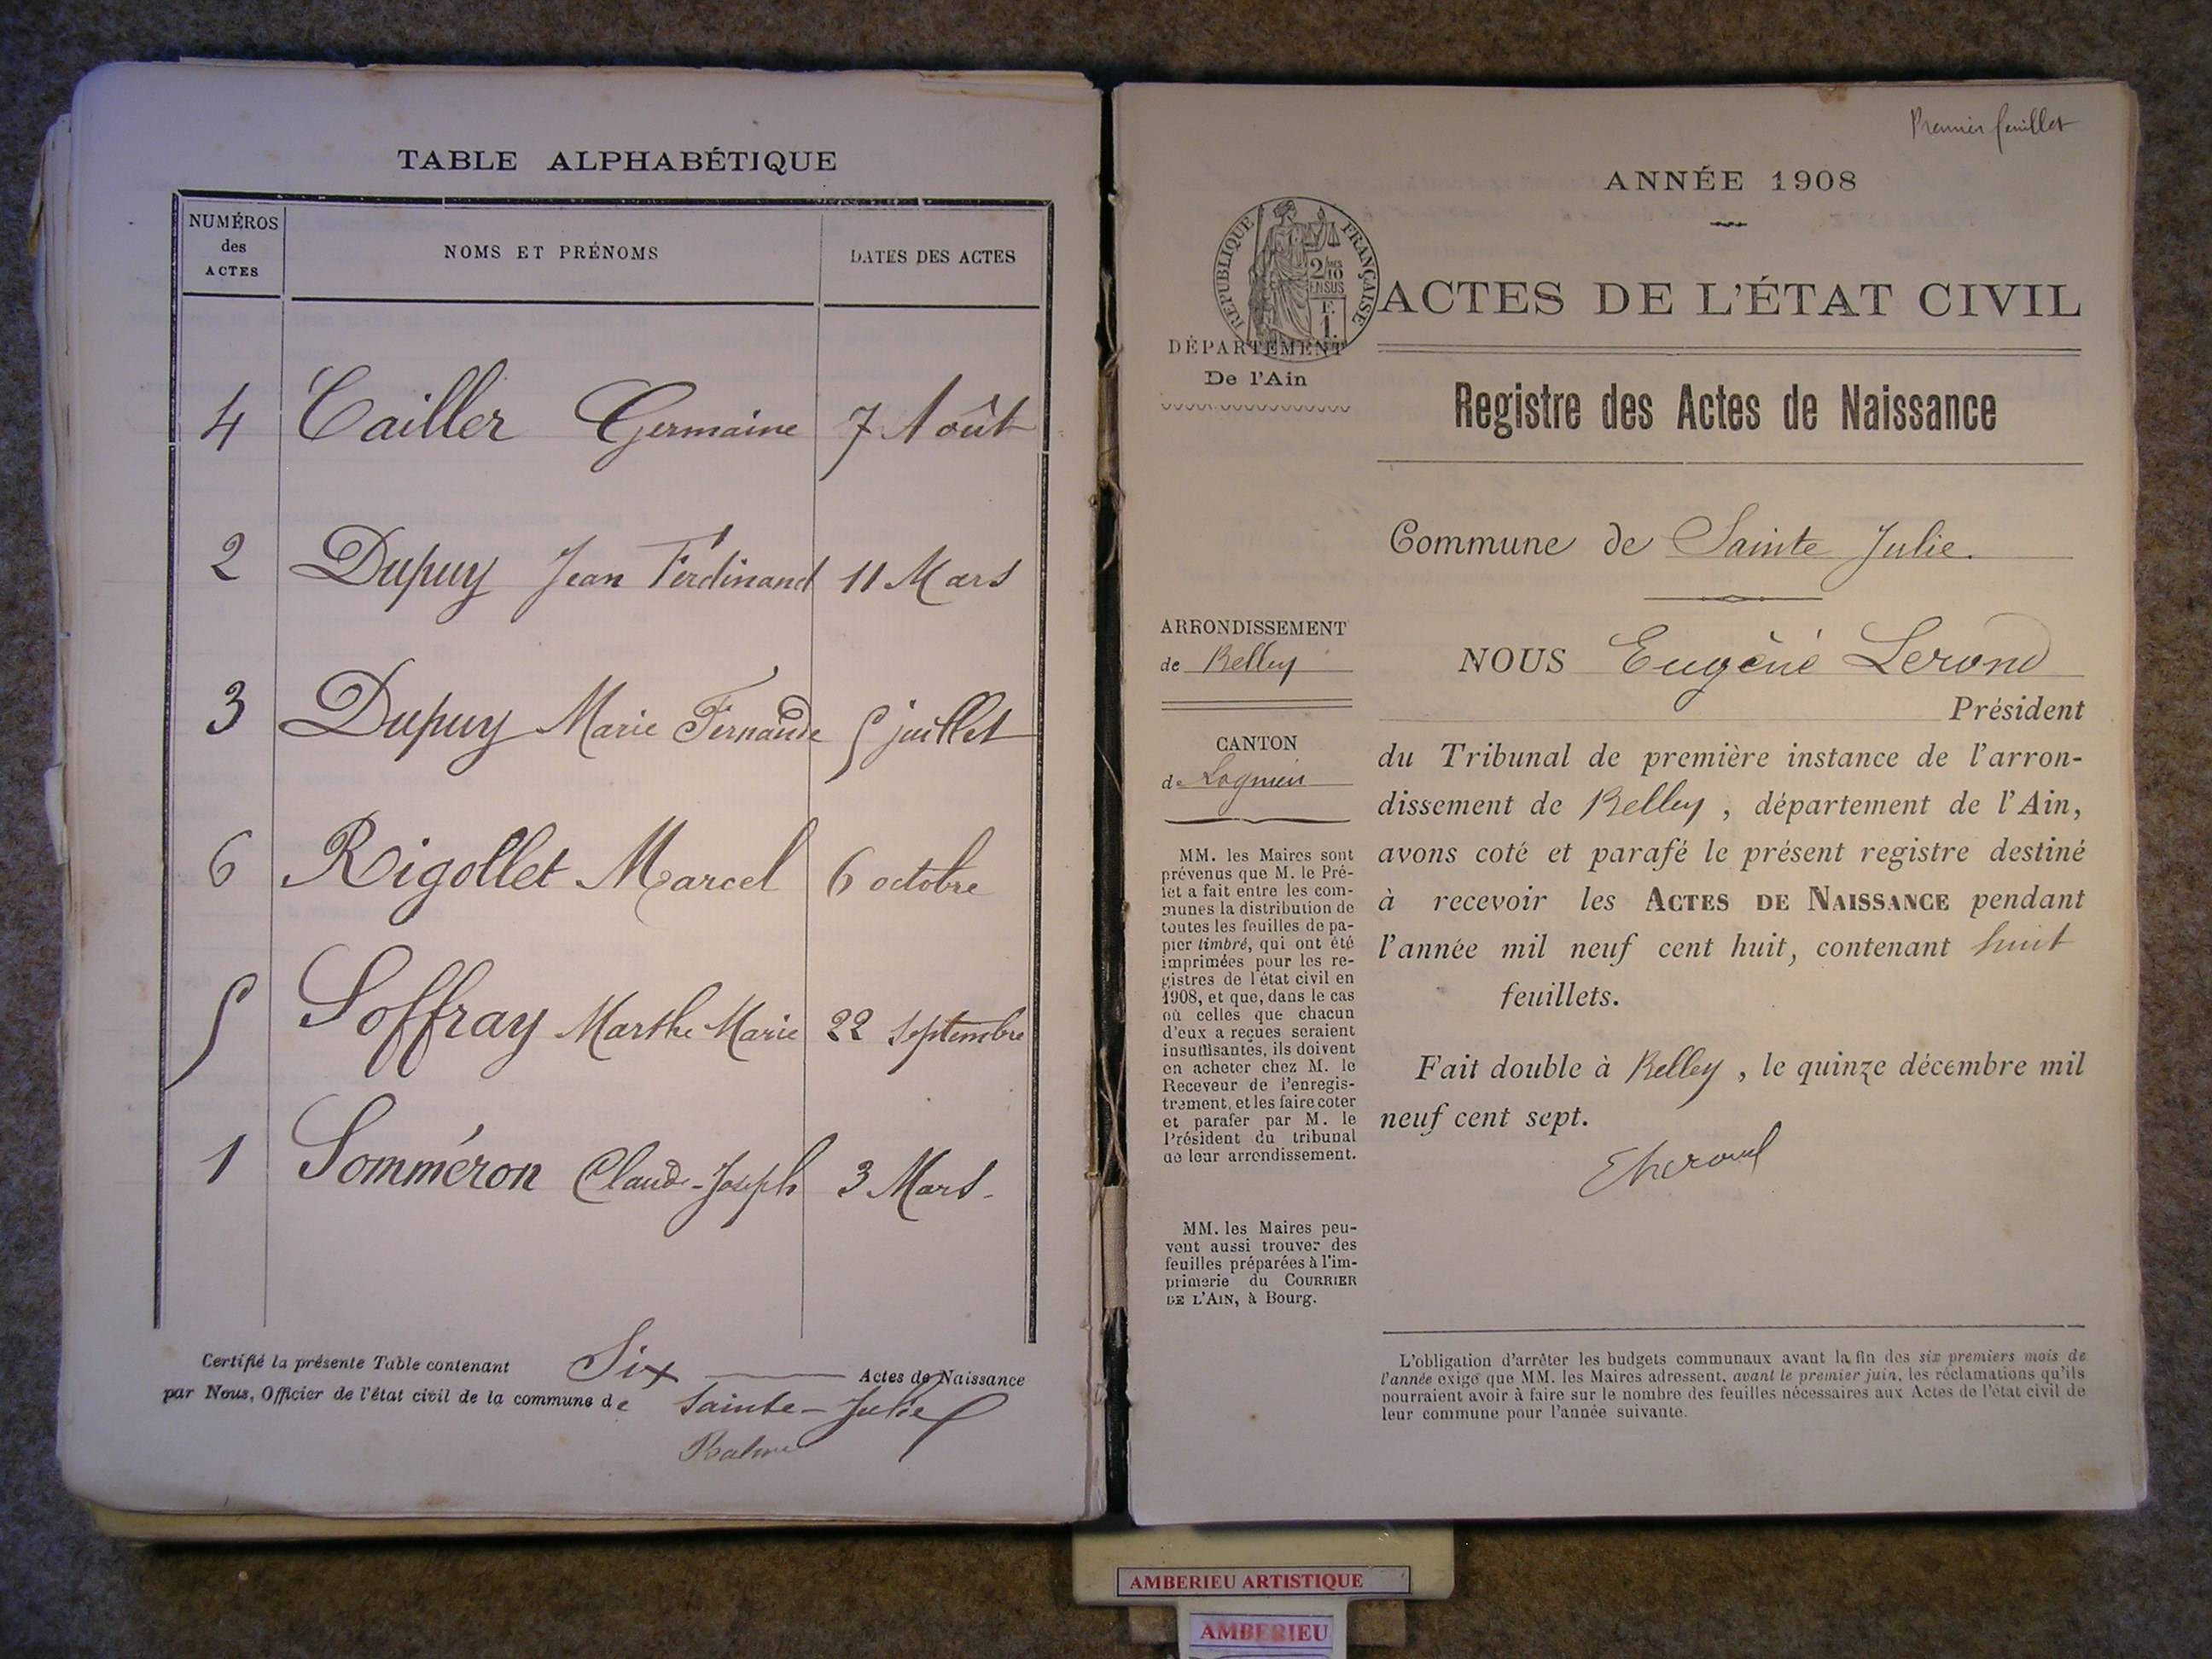 TABLE ALPHABÉTIQUE
NUMÉROS
des
ACTES
NOMS ET PRÉNOMS
DATES DES ACTES
4 Cailler Germaine 7 Août
2 Dupuy Jean Ferdinand 11 Mars
3 Dupuy Marie Fernande 5 juillet
6 Rigollet Marcel 6 octobre
5 Soffray Marthe Marie 22 septembre
1 Somméron Claude-Joseph 3 Mars
Certifié la présente Table contenant Six Actes de Naissance
par Nous, Officier de l'état civil de la commune de Sainte-Julie
Premier feuillet
ANNÉE 1908
RÉPUBLIQUE FRANÇAISE
ACTES DE L'ÉTAT CIVIL
DÉPARTEMENT
De l'Ain
Registre des Actes de Naissance
Commune de Sainte Julie.
ARRONDISSEMENT
de Belley
CANTON
de Lagnieu
MM. les Maires sont
prévenus que M. le Pré-
fet a fait entre les com-
munes la distribution de
toutes les feuilles de pa-
pier timbré, qui ont été
imprimées pour les re-
gistres de l'état civil en
1908, et que, dans le cas
où celles que chacun
d'eux a reçues seraient
insuffisantes, ils doivent
en acheter chez M. le
Receveur de l'enregis-
trement, et les faire coter
et parafer par M. le
Président du tribunal
de leur arrondissement.
MM. les Maires peu-
vent aussi trouver des
feuilles préparées à l'im-
primerie du COURRIER
DE L'AIN, à Bourg.
NOUS Eugène Lerond
Président
du Tribunal de première instance de l'arron-
dissement de Belley , département de l'Ain,
avons coté et parafé le présent registre destiné
à recevoir les ACTES DE NAISSANCE pendant
l'année mil neuf cent huit, contenant huit
feuillets.
Fait double à Belley , le quinze décembre mil
neuf cent sept.
L'obligation d'arrêter les budgets communaux avant la fin des six premiers mois de
l'année exige que MM. les Maires adressent, avant le premier juin, les réclamations qu'ils
pourraient avoir à faire sur le nombre des feuilles nécessaires aux Actes de l'état civil de
leur commune pour l'année suivante.
AMBERIEU ARTISTIQUE
AMBERIEU